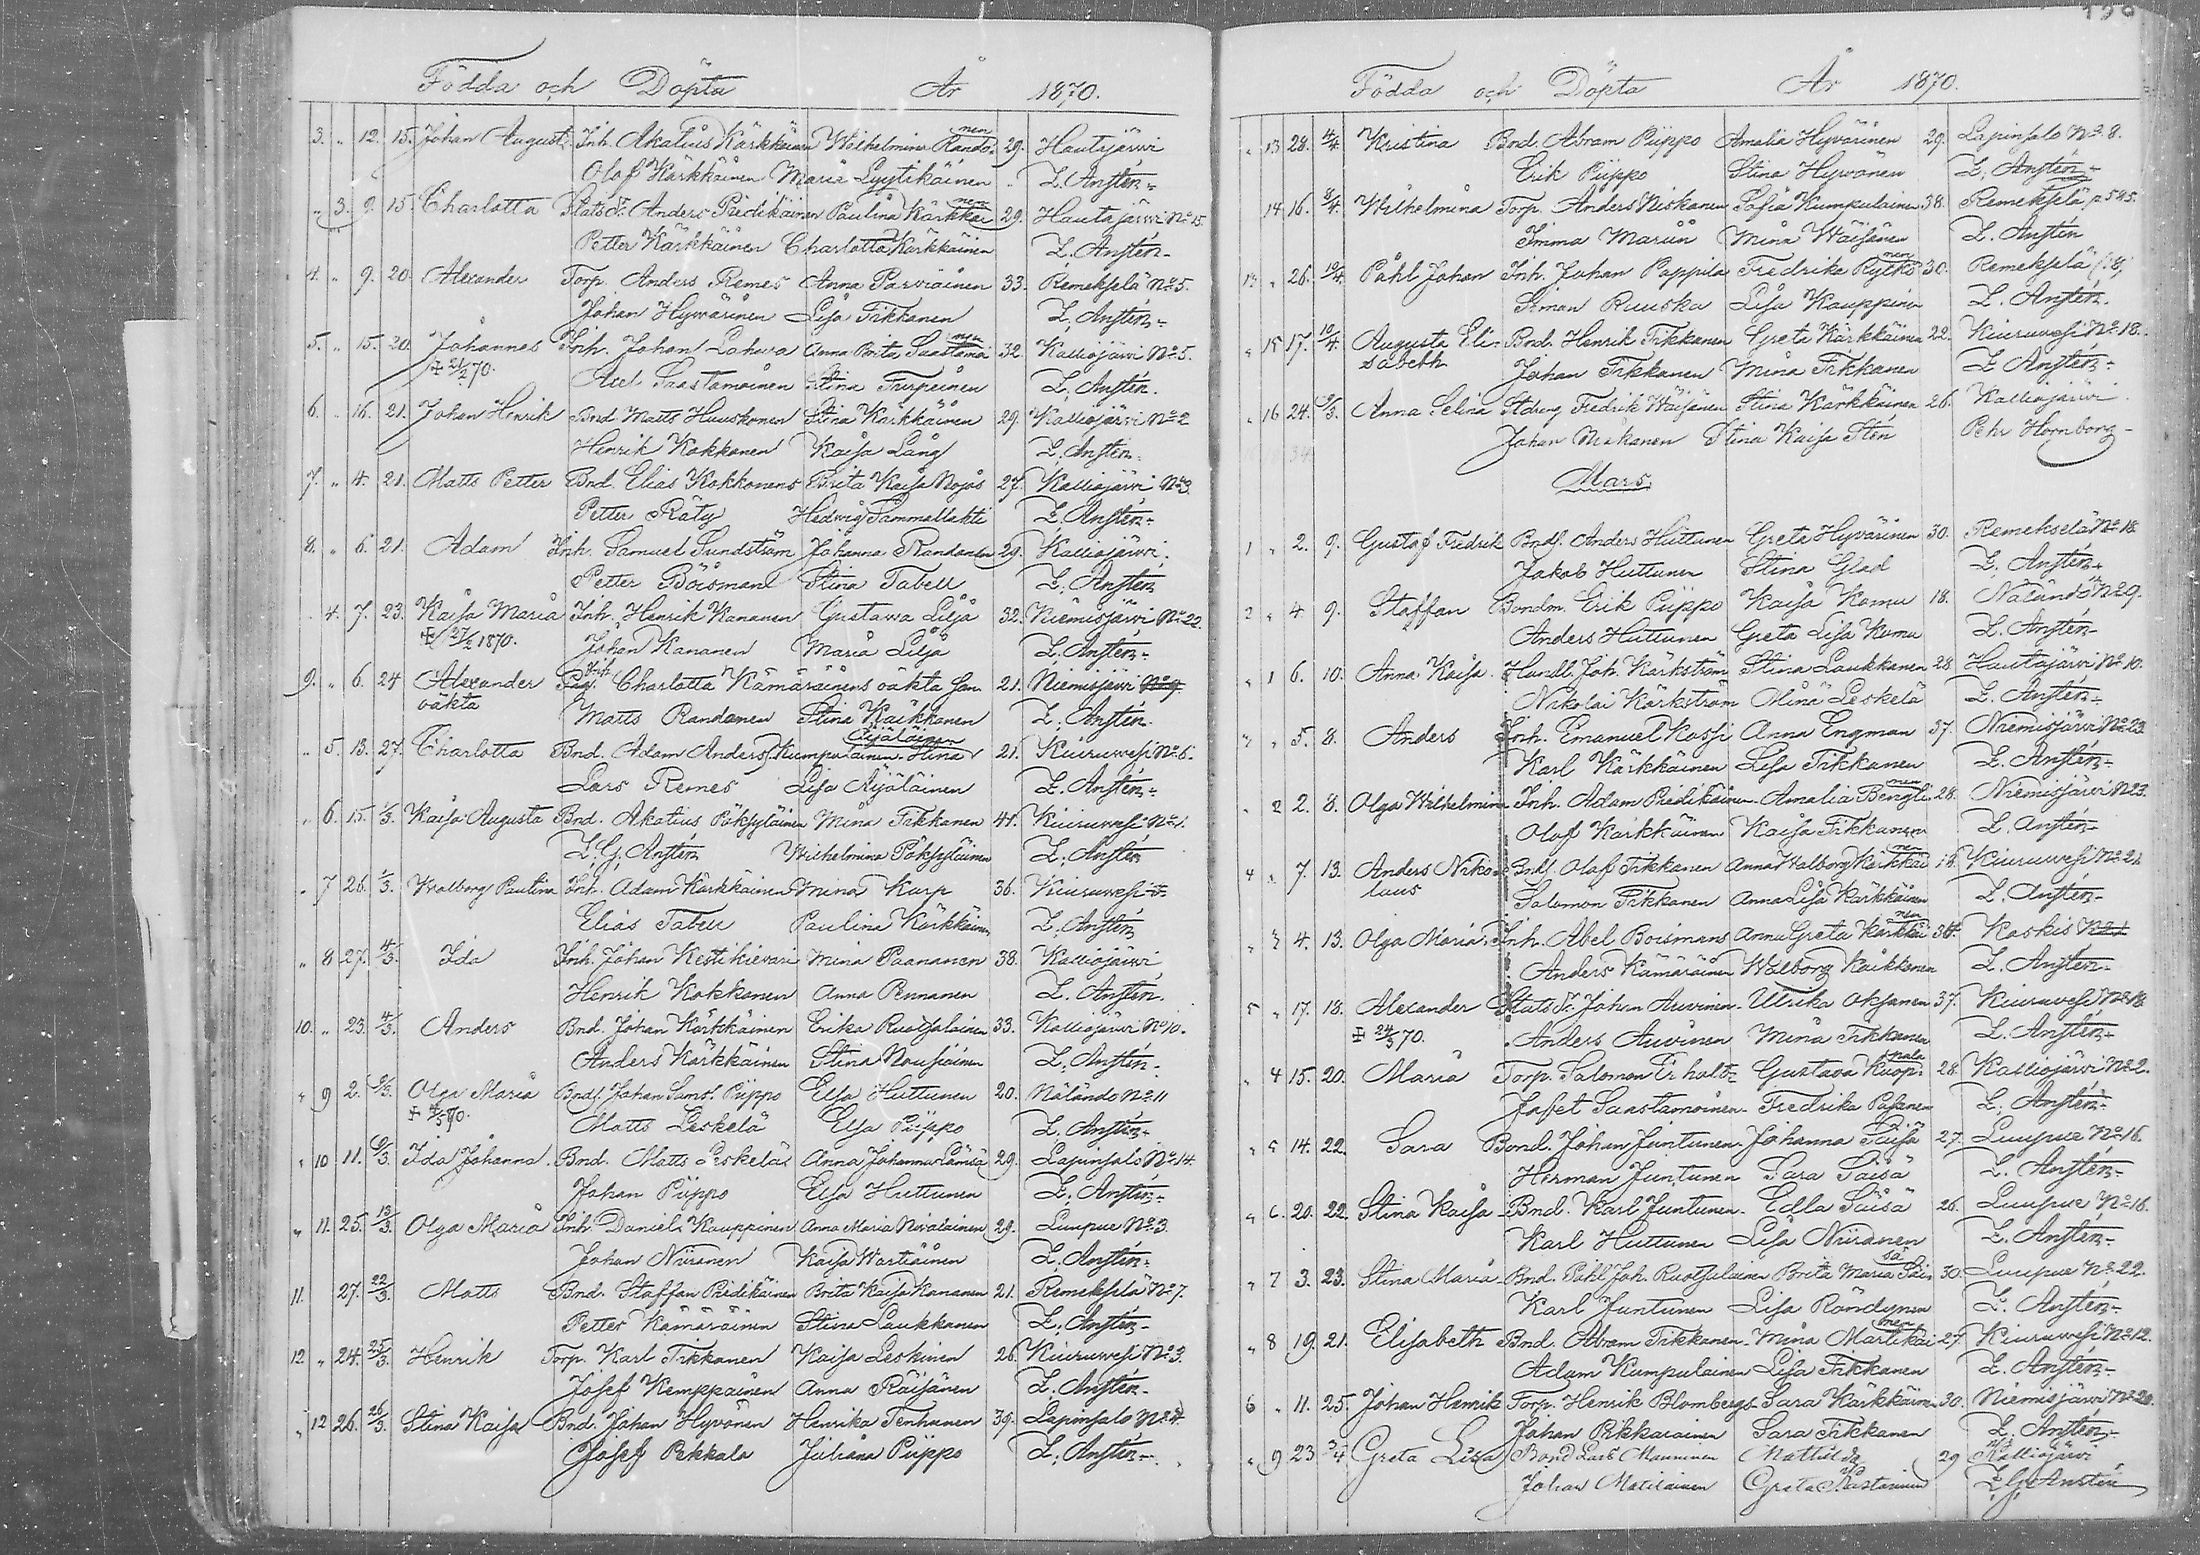 Födda och Döpta År 1870.
3. " 12. 15. Johan August Inh. Akatius Kärkkäinen Wilhelmina Randonen 29. Hautajärvi
Olof Kärkkäinen Maria Lyytikäinen " L. Anstén
" 3. 9. 15. Charlotta Anders Predikäinen Paulina Kärkkäinen 29. Hautajärvi No 15.
Petter Kärkkäinen Charlotta Kärkkäinen L. Anstén
4. " 9. 20. Alexander Torp. Anders Remes Anna Parviäinen 33. Remekselä No 5.
Johan Hyvärinen Lisa Tikkanen L. Anstén
5. " 15. 20. Johannes Inh. Johan Lahwa Anna Brita Saastamoinen 32. Kalliojärvi No 5.
Axel Saastamoinen Stina L. Anstén
6. " 16. 21. Johan Henrik Bnd. Matts Huuskonen Stina Kärkkäinen 29. Kalliojärvi No 2
Henrik Kokkonen Kaisa Lång L. Anstén
7. " 4. 21. Matts Petter Bnd. Elias Kokkonens Brita Kaisa Nojos 27. Kalliojärvi No 3.
Petter Räty Hedwig Sammallahti L. Anstén
8. " 6. 21. Adam Inh. Samuel Sundström Johanna Randanen 29. Kalliojärvi
Petter Böisman Stina Tabell L. Anstén
. 4. 7. 23. Kaisa Maria Inh. Henrik Kananen Gustava Lilja 32. Niemisjärvi No 22.
+ 27/2 1870. Johan Kananen Maria Lilja L. Anstén
9. " 6. 24 Alexander Charlotta Kämäräinens oäkta son 21. Niemisjärvi No 9
oäkta Matts Randanen Stina Kaikkonen L. Anstén
" 5. 13. 27. Charlotta Bnd. Adam Anders. Kumpulainen Stina Äijäläinen 21. Kiuruwesi No 6.
Lars Remes Lisa Äijäläinen L. Anstén
" 6. 15. 1/3. Kaisa Augusta Bnd. Akatius Pöksyläinen Mina Tikkanen 41. Kiuruwesi No 1.
L. G. Anstén Wilhelmina Pöksyläinen L. Anstén
" 7 26. 1/3. Walborg Paulina Inh. Adam Kärkkäinen Mina Karp 36. Kiuruwesi
Elias Tabell Paulina Kärkkäinen L. Anstén
" 8 27. 4/3. Ida Inh. Johan Kestikievari Mina Paananen 38. Kalliojärvi
Henrik Kokkonen Anna Pennanen L. Anstén
10. " 23. 4/3. Anders Bnd. Johan Kärkkäinen Erika Ruotsalainen 33. Kalliojärvi No 10.
Anders Kärkkäinen Stina Nousiainen L. Anstén
" 9 2. 6/3. Olga Maria Bnds. Johan Sams. Piippo Elsa Huttunen 20. Näländö No 11
Matts Leskelä Elsa Piippo L. Anstén
" 10 11. 6/3. Ida Johanna Bnd. Matts Leskelä Anna Johanna Lämsä 29. Lapinsalo No 14.
Johan Piippo Elsa Huttunen L. Anstén
" 11. 25. 13/3. Olga Maria Inh. Daniel Kauppinen Anna Maria Nivalainen 29. Luupue No 3.
Johan Niiranen Kaisa Wartiainen L. Anstén
11. 27. 22/3. Matts Bnd. Staffan Predikäinen Brita Kaisa Kananen 21. Remekselä No 7.
Petter Kämäräinen Stina Laukkanen L. Anstén
12 " 24. 25/3. Henrik Torp. Karl Tikkanen Kaisa Leskinen 26. Kiuruwesi No 3.
Josef Kemppainen Anna Räisänen L. Anstén
" 12 26. 26/3. Stina Kaisa Bnd. Johan Hyvönen Henrika Tenhunen 39. Lapinsalo No 4.
Josef Pekkala Juliana Piippo L. Anstén
Födda och Döpta År 1870.
" 13 28. 4/4. Kristina Bnd. Abram Piippo Amalia Hyvärinen 29. Lapinsalo No 8.
Erik Piippo Stina Hyvönen L. Anstén
14 16. 8/4. Wilhelmina Torp. Anders Niskanen Sofia Kumpulainen 38. Remekselä
Mina Wäisänen L. Anstén
13 " 26. 10/4. Påhl Johan Inh. Johan Pappila Fredrika 30. Remekselä
Simon Ruuska Lisa Kauppinen L. Anstén
" 15 17. 10/4. Augusta Eli- Bnd. Henrik Tikkanen Greta Kärkkäinen 22. Kiuruwesi No 18.
sabeth Johan Tikkanen Mina Tikkanen L. Anstén
" 16 24. Anna Selina Fredrik Wäisänen Stina Kärkkäinen 26. Kalliojärvi
Johan Stina Kaisa Sten Petr Hornborg
Mars.
1 " 2. 9. Gustaf Fredrik Bnds. Anders Huttunen Greta Hyvärinen 30. Remekselä No 18.
Jakob Huttunen Stina Glad L. Anstén
2 " 4 9. Staffan Bondm. Erik Piippo Kaisa Komu 18. Näländö No 9.
Anders Huttunen Greta Lisa Komu L. Anstén
" 1 6. 10. Anna Kaisa Handl. Joh. Kärkström Stina Laukkanen 28 Hautajärvi No 10.
Nikolai Kärkström Mina Leskelä L. Anstén
3 " 5. 8. Anders Inh. Emanuel Kossi Anna Engman 37. Niemisjärvi No 23.
Karl Kärkkäinen Lisa Tikkanen L. Anstén
" 2 2. 8. Olga Wilhelmina Inh. Adam Predikäinen Amalia 28. Niemisjärvi No 23.
Olof Kärkkäinen Kaisa Tikkanen L. Anstén
4 " 7. 13. Anders Niko- Bnds. Olof Tikkanen Anna Walborg Kärkkäinen 18. Kiuruwesi No 21
laus Salomon Tikkanen Anna Lisa Kärkkäinen L. Anstén
" 3 4. 13. Olga Maria Inh. Abel Boismans Anna Greta Kärkkäinen 34. Koskis No 1
Anders Kämäräinen Walborg Kaikkonen L. Anstén
5 " 17. 18. Alexander Statsdr. Johan Auvinen Ulrika Oksanen 37. Kiuruwesi No 18
+ 24/3 70. Anders Auvinen Mina Tikkanen L. Anstén
" 4 15. 20. Maria Torp. Salomon Gustava 28. Kalliojärvi No 2.
Jafet Saastamoinen Fredrika Pasanen L. Anstén
" 5 14. 22. Sara Bond. Johan Juntunen Johanna Säisä 27. Luupue No 16.
Herman Juntunen Sara Säisä L. Anstén
" 6. 20. 22. Stina Kaisa Bnd. Karl Juntunen Edla Säisä 26. Luupue No 16.
Karl Huttunen Lisa Niiranen L. Anstén
" 7 3. 23. Stina Maria Bnd. Påhl Joh. Ruotsalainen Brita Maria Säisä 30. Luupue No 22.
Karl Juntunen Lisa Röndynen L. Anstén
" 8 19. 21. Elisabeth Bnd. Abram Tikkanen Mina Martikainen 27. Kiuruwesi No 12.
Adam Kumpulainen Lisa Tikkanen L. Anstén
6 " 11. 25. Johan Henrik Torp. Henrik Blombergs Sara Kärkkäinen 30. Niemisjärvi No 20.
Johan Pikkarainen Sara Tikkanen L. Anstén
" 9 23 Greta Lisa Bond Lars Manninen Mathilda 29 Kalliojärvi
Johan Matilainen Greta L G Anstén